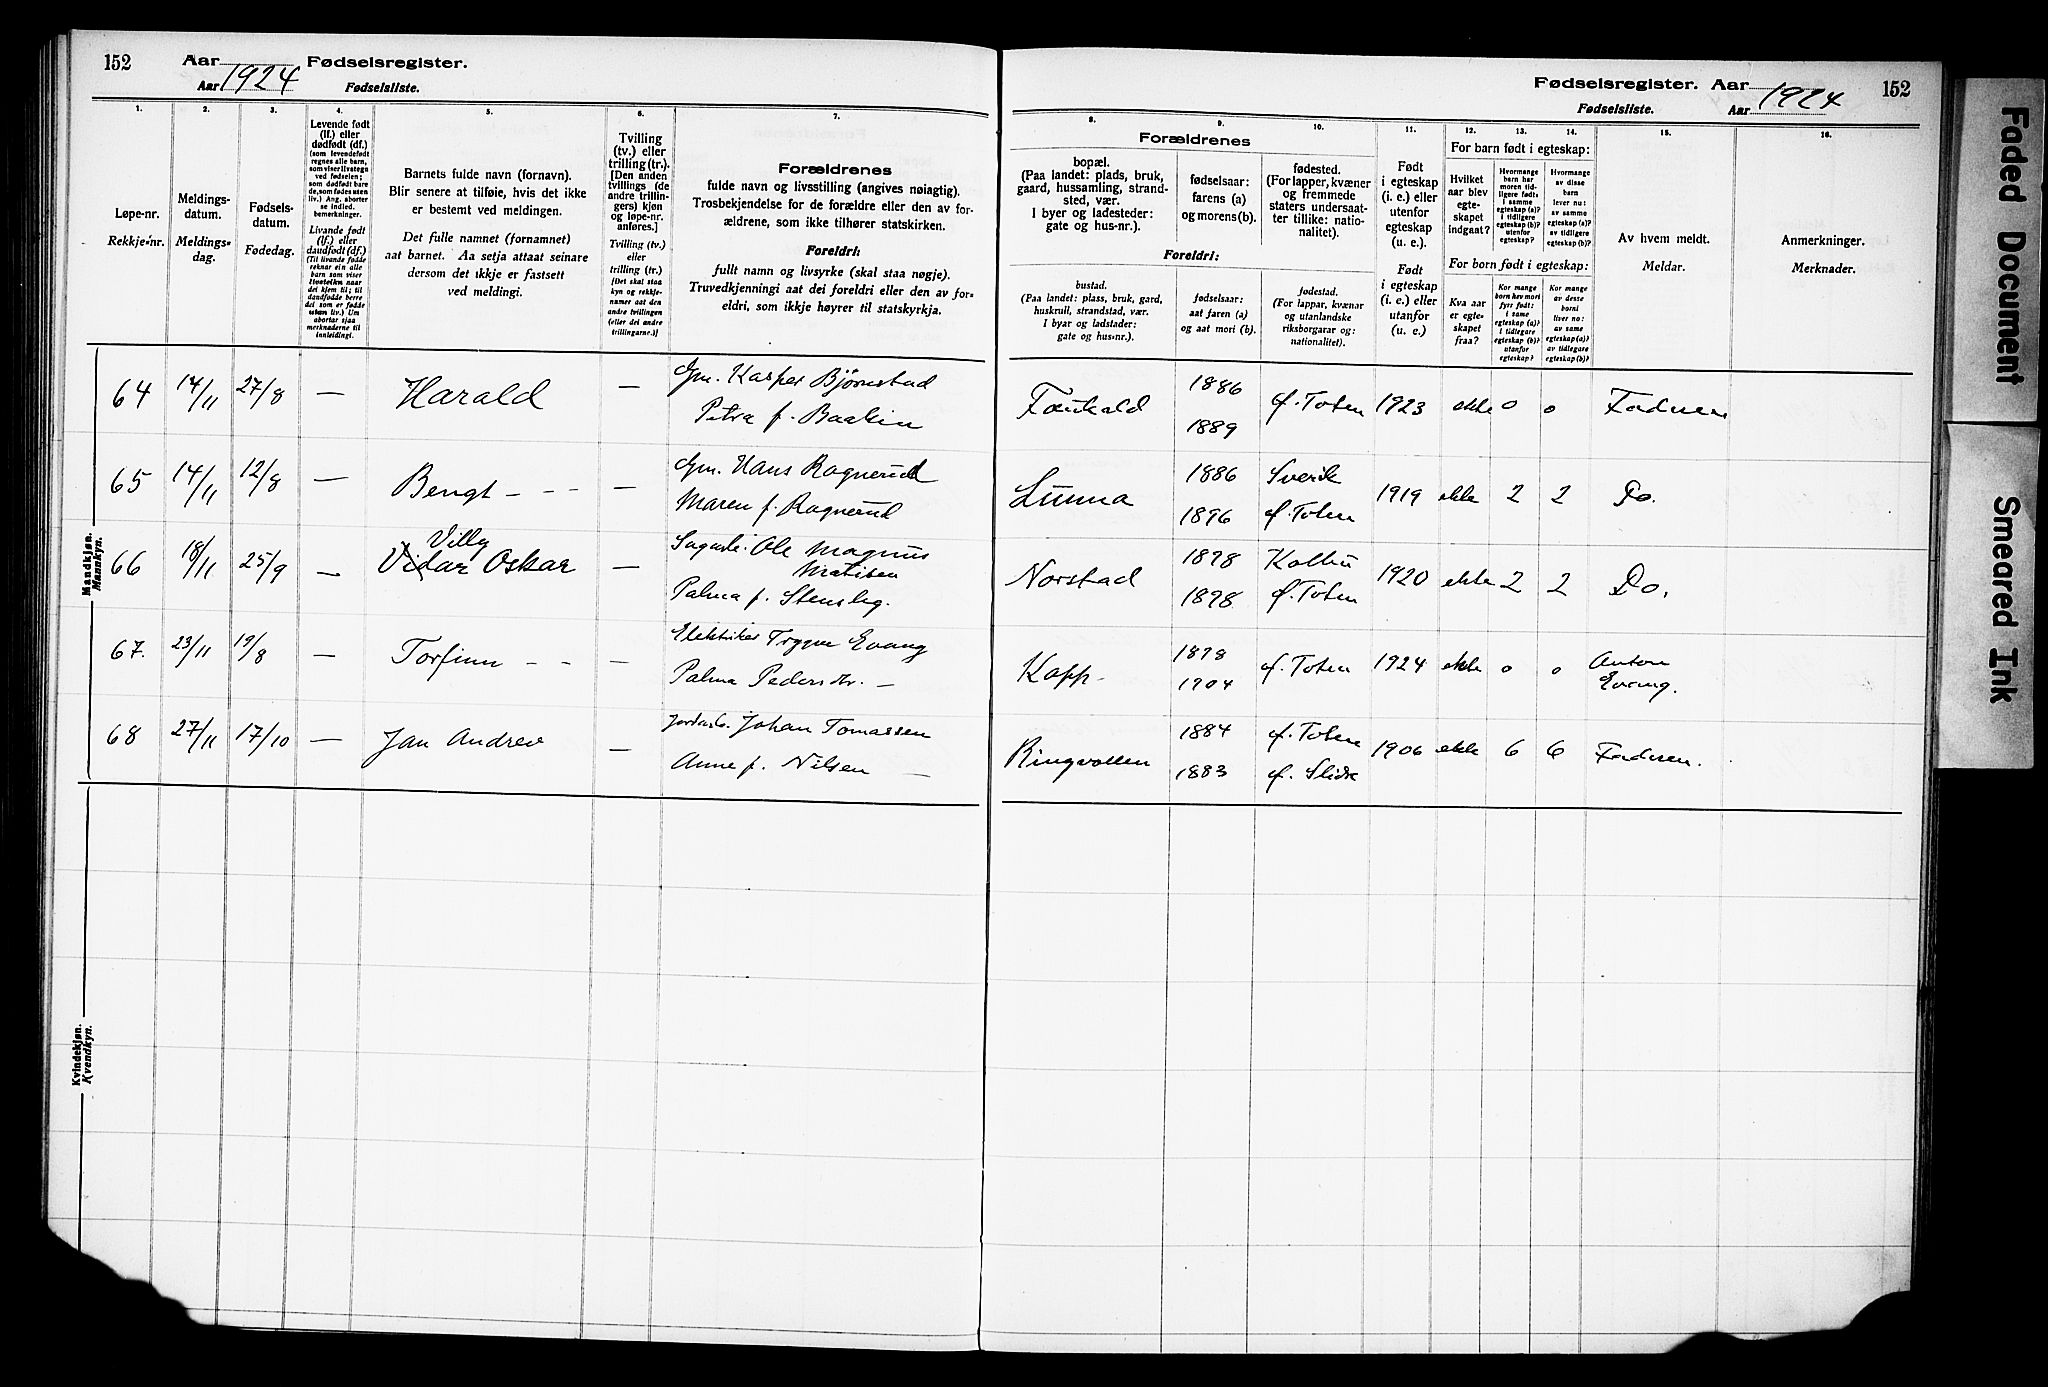 152 Aar 1924 Fødselsregister.
Aar Fødselsliste.
Fødselsregister. Aar 1924 152
Fødselsliste. Aar
1. 2. 3. 4. 5. 6. 7.
Løpe-nr.
Rekkje-nr.
Meldings-
datum.
Meldings-
dag.
Fødsels-
datum.
Fødedag.
Levende født
(lf.) eller
dødfødt (df.)
(som levendefødt
regnes alle barn,
som viser livstegn
ved fødselen;
som dødfødt bare
de, som fødes uten
liv.) Ang. aborter
se indled.
bemerkninger.
Livande født
(lf.) eller
daudfødt (df.)
Barnets fulde navn (fornavn).
Blir senere at tilføie, hvis det ikke
er bestemt ved meldingen.
Det fulle namnet (fornamnet)
aat barnet. Aa setja attaat seinare
dersom det ikkje er fastsett
ved meldingi.
Tvilling
(tv.) eller
trilling (tr.).
[Den anden
tvillings (de
andre trillin-
gers) kjøn
og løpe-nr.
anføres.]
Tvilling (tv.)
eller
trilling (tr.)
[Det skal staa
kyn og rekkje-
numer aat den
andre tvillingen
(eller dei andre
trillingarne.)]
Forældrenes
fulde navn og livsstilling (angives nøiagtig).
Trosbekjendelse for de forældre eller den av for-
ældrene, som ikke tilhører statskirken.
Foreldri:
fullt namn og livsyrke (skal staa nøgje).
Truvedkjenningi aat dei foreldri eller den av for-
eldri, som ikkje høyrer til statskyrkja.
8. 9. 10. 11. 12. 13. 14. 15. 16.
Forældrenes
bopæl.
(Paa landet: plads, bruk,
gaard, hussamling, strand-
sted, vær.
I byer og ladesteder:
gate og hus-nr.).
fødselsaar:
farens (a)
og morens (b).
fødested.
(For lapper, kvæner
og fremmede
staters undersaat-
ter tillike: natio-
nalitet).
Foreldri:
bustad.
(Paa landet: plass, bruk, gard,
huskrull, strandstad, vær.
I byar og ladstader:
gate og hus-nr.).
fødselsaar:
aat faren (a)
og aat mori (b).
fødestad.
(For lappar, kvænar
og utanlandske
riksborgarar og:
nationalitet).
Født
i egteskap
(i. e.) eller
utenfor
egteskap
(u. e.).
Født
i egteskap
(i. e.) eller
utanfor
(u. e.).
For barn født i egteskap:
Hvilket
aar blev
egte-
skapet
indgaat?
Hvormange
barn har
moren tid-
ligere født:
i samme
egteskap (a)?
i tidligere
egteskap (b)?
utenfor
egteskap?
Hvormange
av disse
barn
lever nu:
av samme
egteskap (a)?
av tidligere
egteskap (b)?
For born født i egteskap:
Kva aar
er egte-
skapet
fraa?
Kor mange
born hev mori
fyrr født:
i same
egteskap (a)?
i tidlegare
egteskap (b)?
utanfor
egteskap?
Kor mange
av desse
borni
liver no:
av same
egteskap (a)?
av tidlegare
egteskap (b)?
Av hvem meldt.
Meldar.
Anmerkninger.
Merknader.
Mandkjøn.
Mannkyn.
64 14/11 27/8 — Harald — Gm. Kasper Bjørnstad 1886 ø. Toten 1923 ekte 0 0 Faderen
Petra f. Baakin 1889
65 14/11 12/8 — Bengt - - - — Gm. Hans Rognerud Lunna 1886 Sverik 1919 ekte 2 2 Do.
Maren f. Rognerud 1896 ø. Toten
Villy
66 18/11 25/9 — Vidar Oskar — Ole Magnus Norstad 1898 Kolbu 1920 ekte 2 2 Do.
Matisen
Palma f. Stenslęg. 1898 ø. Toten
67. 23/11 19/8 — Torfinn - - — Elektriker Trygve Evang Kapp. 1898 ø. Toten 1924 ekte 0 0 Anton
Palma Pedersdtr. — 1904 Evang.
68 27/11 17/10 — Jan Andrev — Jordarb. Johan Tomassen Ringvollen 1884 ø. Toten 1906 ekte 6 6 Faderen.
Anne f. Nilsen — 1883 ø. Slidre
Kvindekjøn.
Kvendkyn.
Faded Document
Smeared Ink